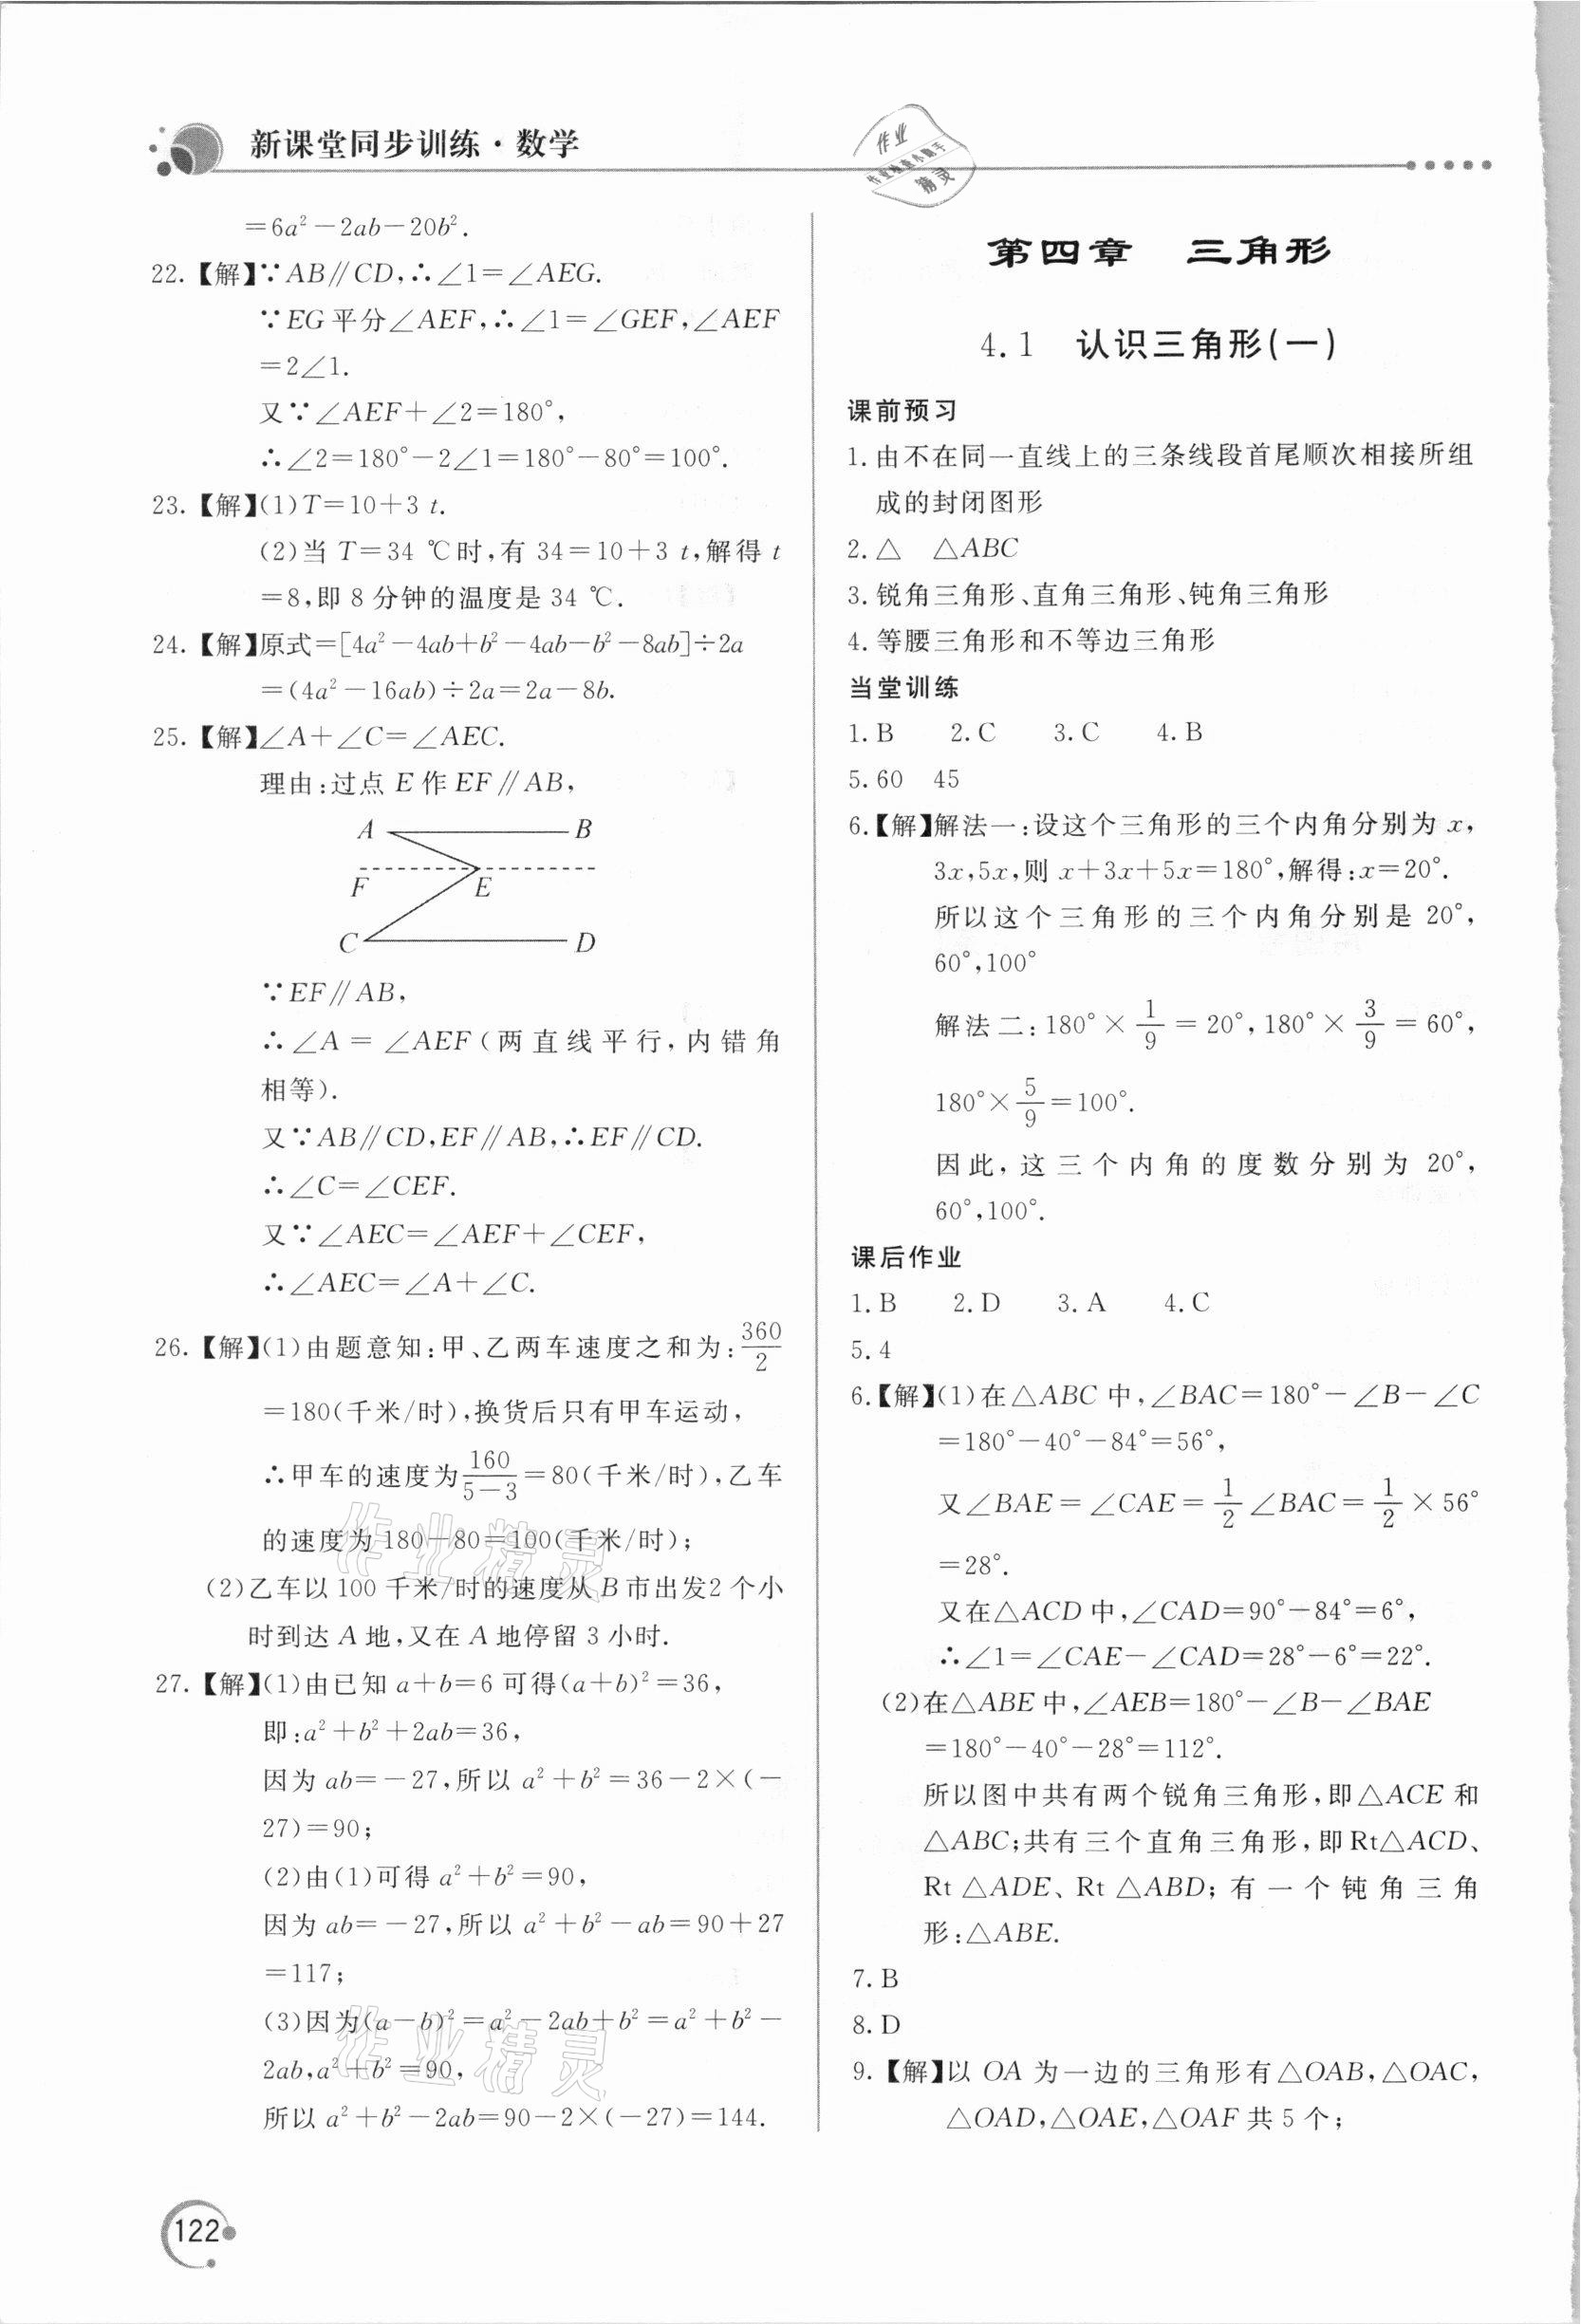 新课堂同步训练·数学
作业
作业检查小助手
精灵
=6a²-2ab-20b².
22.【解】∵AB∥CD,∴∠1=∠AEG.
∵EG平分∠AEF,∴∠1=∠GEF,∠AEF
=2∠1.
又∵∠AEF+∠2=180°,
∴∠2=180°-2∠1=180°-80°=100°.
23.【解】(1)T=10+3 t.
(2)当 T=34 ℃时,有 34=10+3 t,解得 t
=8,即 8 分钟的温度是 34 ℃.
24.【解】原式=[4a²-4ab+b²-4ab-b²-8ab]÷2a
=(4a²-16ab)÷2a=2a-8b.
25.【解】∠A+∠C=∠AEC.
理由:过点 E 作 EF∥AB,
A B
F E
C D
∵EF∥AB,
∴∠A=∠AEF(两直线平行,内错角
相等).
又∵AB∥CD,EF∥AB,∴EF∥CD.
∴∠C=∠CEF.
又∵∠AEC=∠AEF+∠CEF,
∴∠AEC=∠A+∠C.
26.【解】(1)由题意知:甲、乙两车速度之和为:360/2
=180(千米/时),换货后只有甲车运动,
∴甲车的速度为160/(5-3)=80(千米/时),乙车
的速度为 180-80=100(千米/时);
(2)乙车以 100 千米/时的速度从 B 市出发2 个小
时到达 A 地,又在 A 地停留 3 小时.
27.【解】(1)由已知 a+b=6 可得(a+b)²=36,
即:a²+b²+2ab=36,
因为 ab=-27,所以 a²+b²=36-2×(-
27)=90;
(2)由(1)可得 a²+b²=90,
因为 ab=-27,所以 a²+b²-ab=90+27
=117;
(3)因为(a-b)²=a²-2ab+b²=a²+b²-
2ab,a²+b²=90,
所以 a²+b²-2ab=90-2×(-27)=144.
作业精灵
作业精灵
122
第四章 三角形
4.1 认识三角形(一)
课前预习
1.由不在同一直线上的三条线段首尾顺次相接所组
成的封闭图形
2.△ △ABC
3.锐角三角形、直角三角形、钝角三角形
4.等腰三角形和不等边三角形
当堂训练
1.B 2.C 3.C 4.B
5.60 45
6.【解】解法一:设这个三角形的三个内角分别为 x,
3x,5x,则 x+3x+5x=180°,解得:x=20°.
所以这个三角形的三个内角分别是 20°,
60°,100°
解法二:180°×1/9=20°,180°×3/9=60°,
180°×5/9=100°.
因此,这三个内角的度数分别为 20°,
60°,100°.
课后作业
1.B 2.D 3.A 4.C
5.4
6.【解】(1)在△ABC 中,∠BAC=180°-∠B-∠C
=180°-40°-84°=56°,
又∠BAE=∠CAE=1/2∠BAC=1/2×56°
=28°.
又在△ACD 中,∠CAD=90°-84°=6°,
∴∠1=∠CAE-∠CAD=28°-6°=22°.
(2)在△ABE 中,∠AEB=180°-∠B-∠BAE
=180°-40°-28°=112°.
所以图中共有两个锐角三角形,即△ACE 和
△ABC;共有三个直角三角形,即Rt△ACD、
Rt△ADE、Rt△ABD;有一个钝角三角
形:△ABE.
7.B
8.D
9.【解】以 OA 为一边的三角形有△OAB,△OAC,
△OAD,△OAE,△OAF 共 5 个;